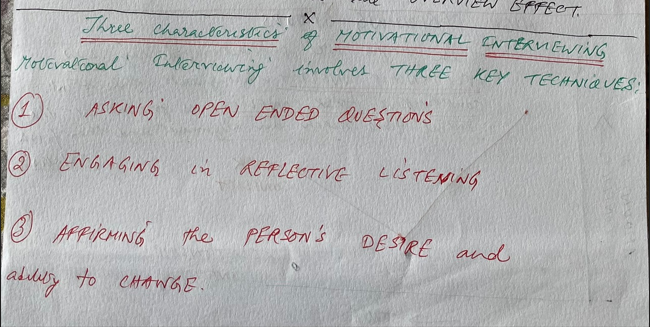 the OVERVIEW EFFECT.
x
Three characteristics of MOTIVATIONAL INTERVIEWING
Motivational Interviewing involves THREE KEY TECHNIQUES:
① ASKING OPEN ENDED QUESTIONS
② ENGAGING in REFLECTIVE LISTENING
③ AFFIRMING the PERSON'S DESIRE and
ability to CHANGE.